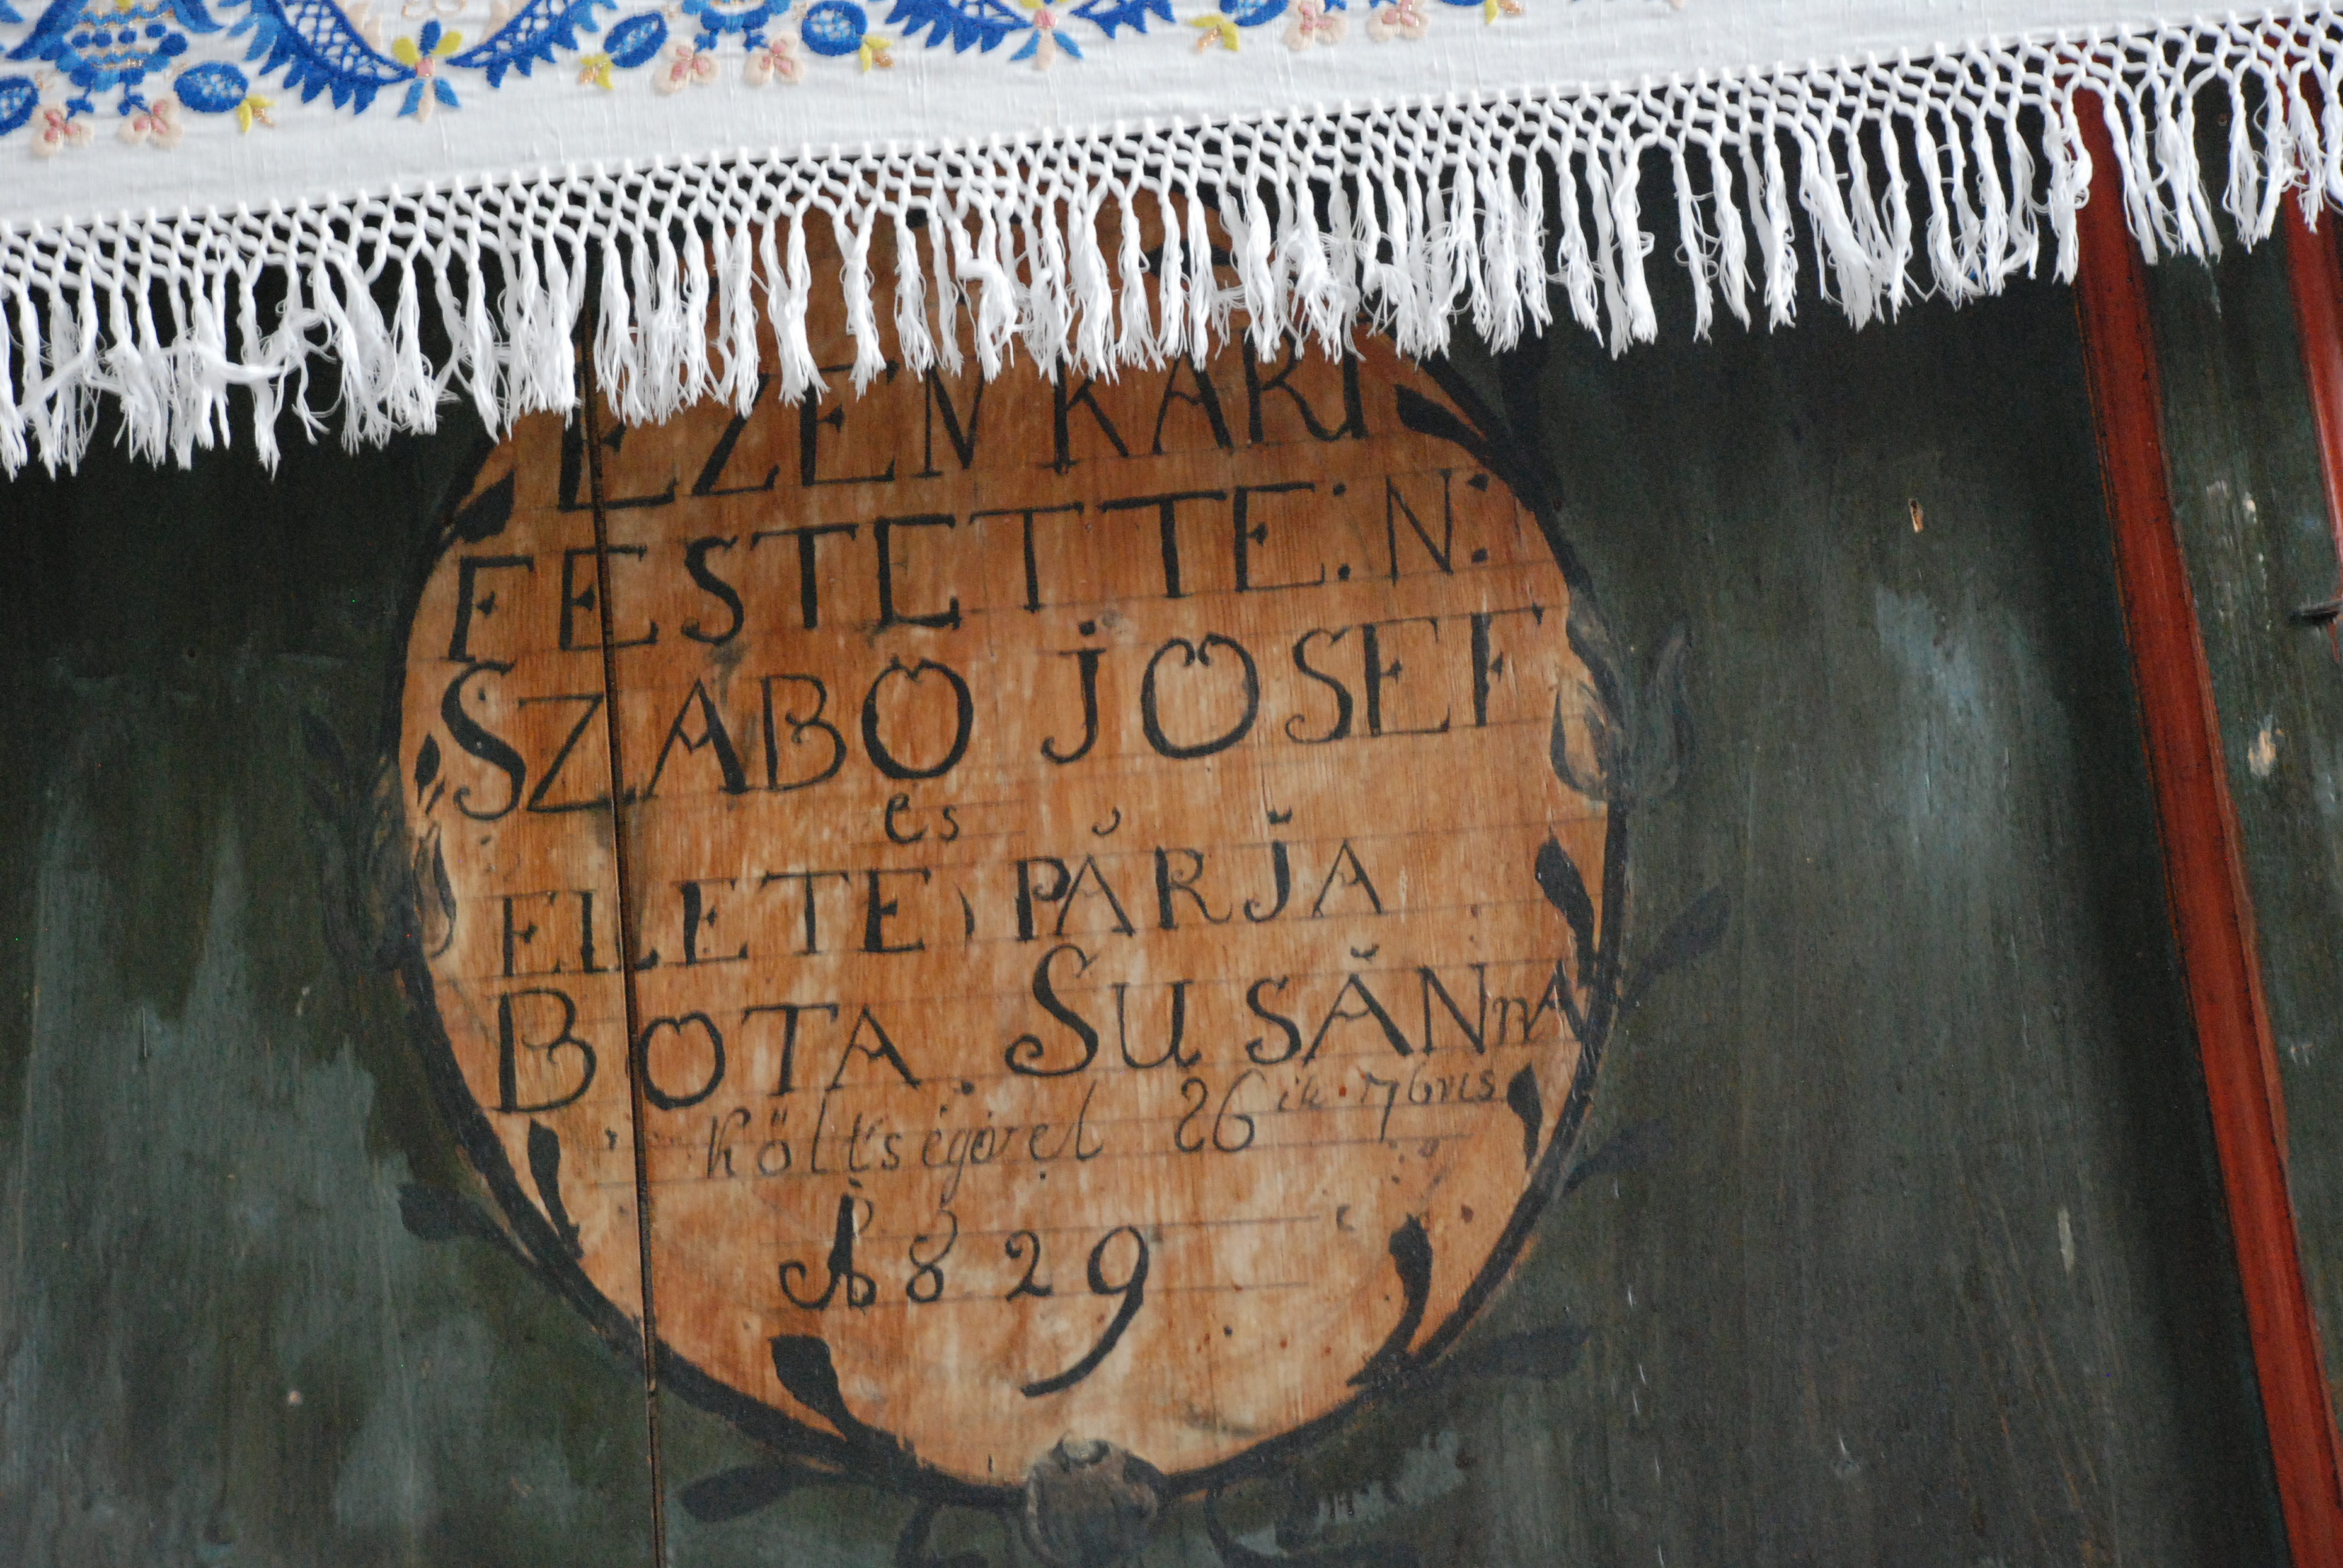 EZEN KART
FESTETTE: N:
SZABÖ JÖSEF
és
ELETE PĂRJ̆A
BOTA. SUSĂNnA
Költségével 26ik 7bris
1829